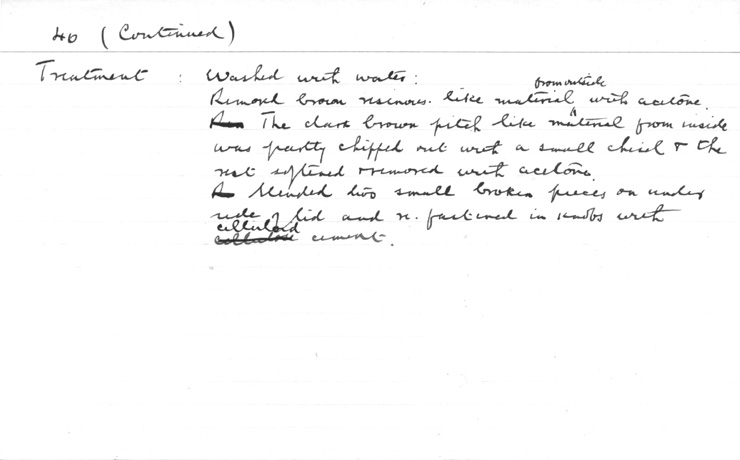 40 (Continued)
Treatment : Washed with water :
from outside
Removed brown resinous like material with acetone.
The dark brown pitch like material from inside
was partly chipped out with a small chisel + the
rest softened + removed with acetone.
Mended two small broken pieces on under
side of lid and re.fastened in knobs with
celluloid
cellulose cement.